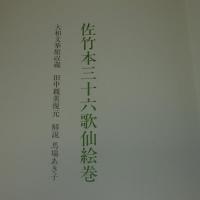 佐竹本三十六歌仙絵巻
大和文華館収蔵 田中親美復元 解説 馬場あき子